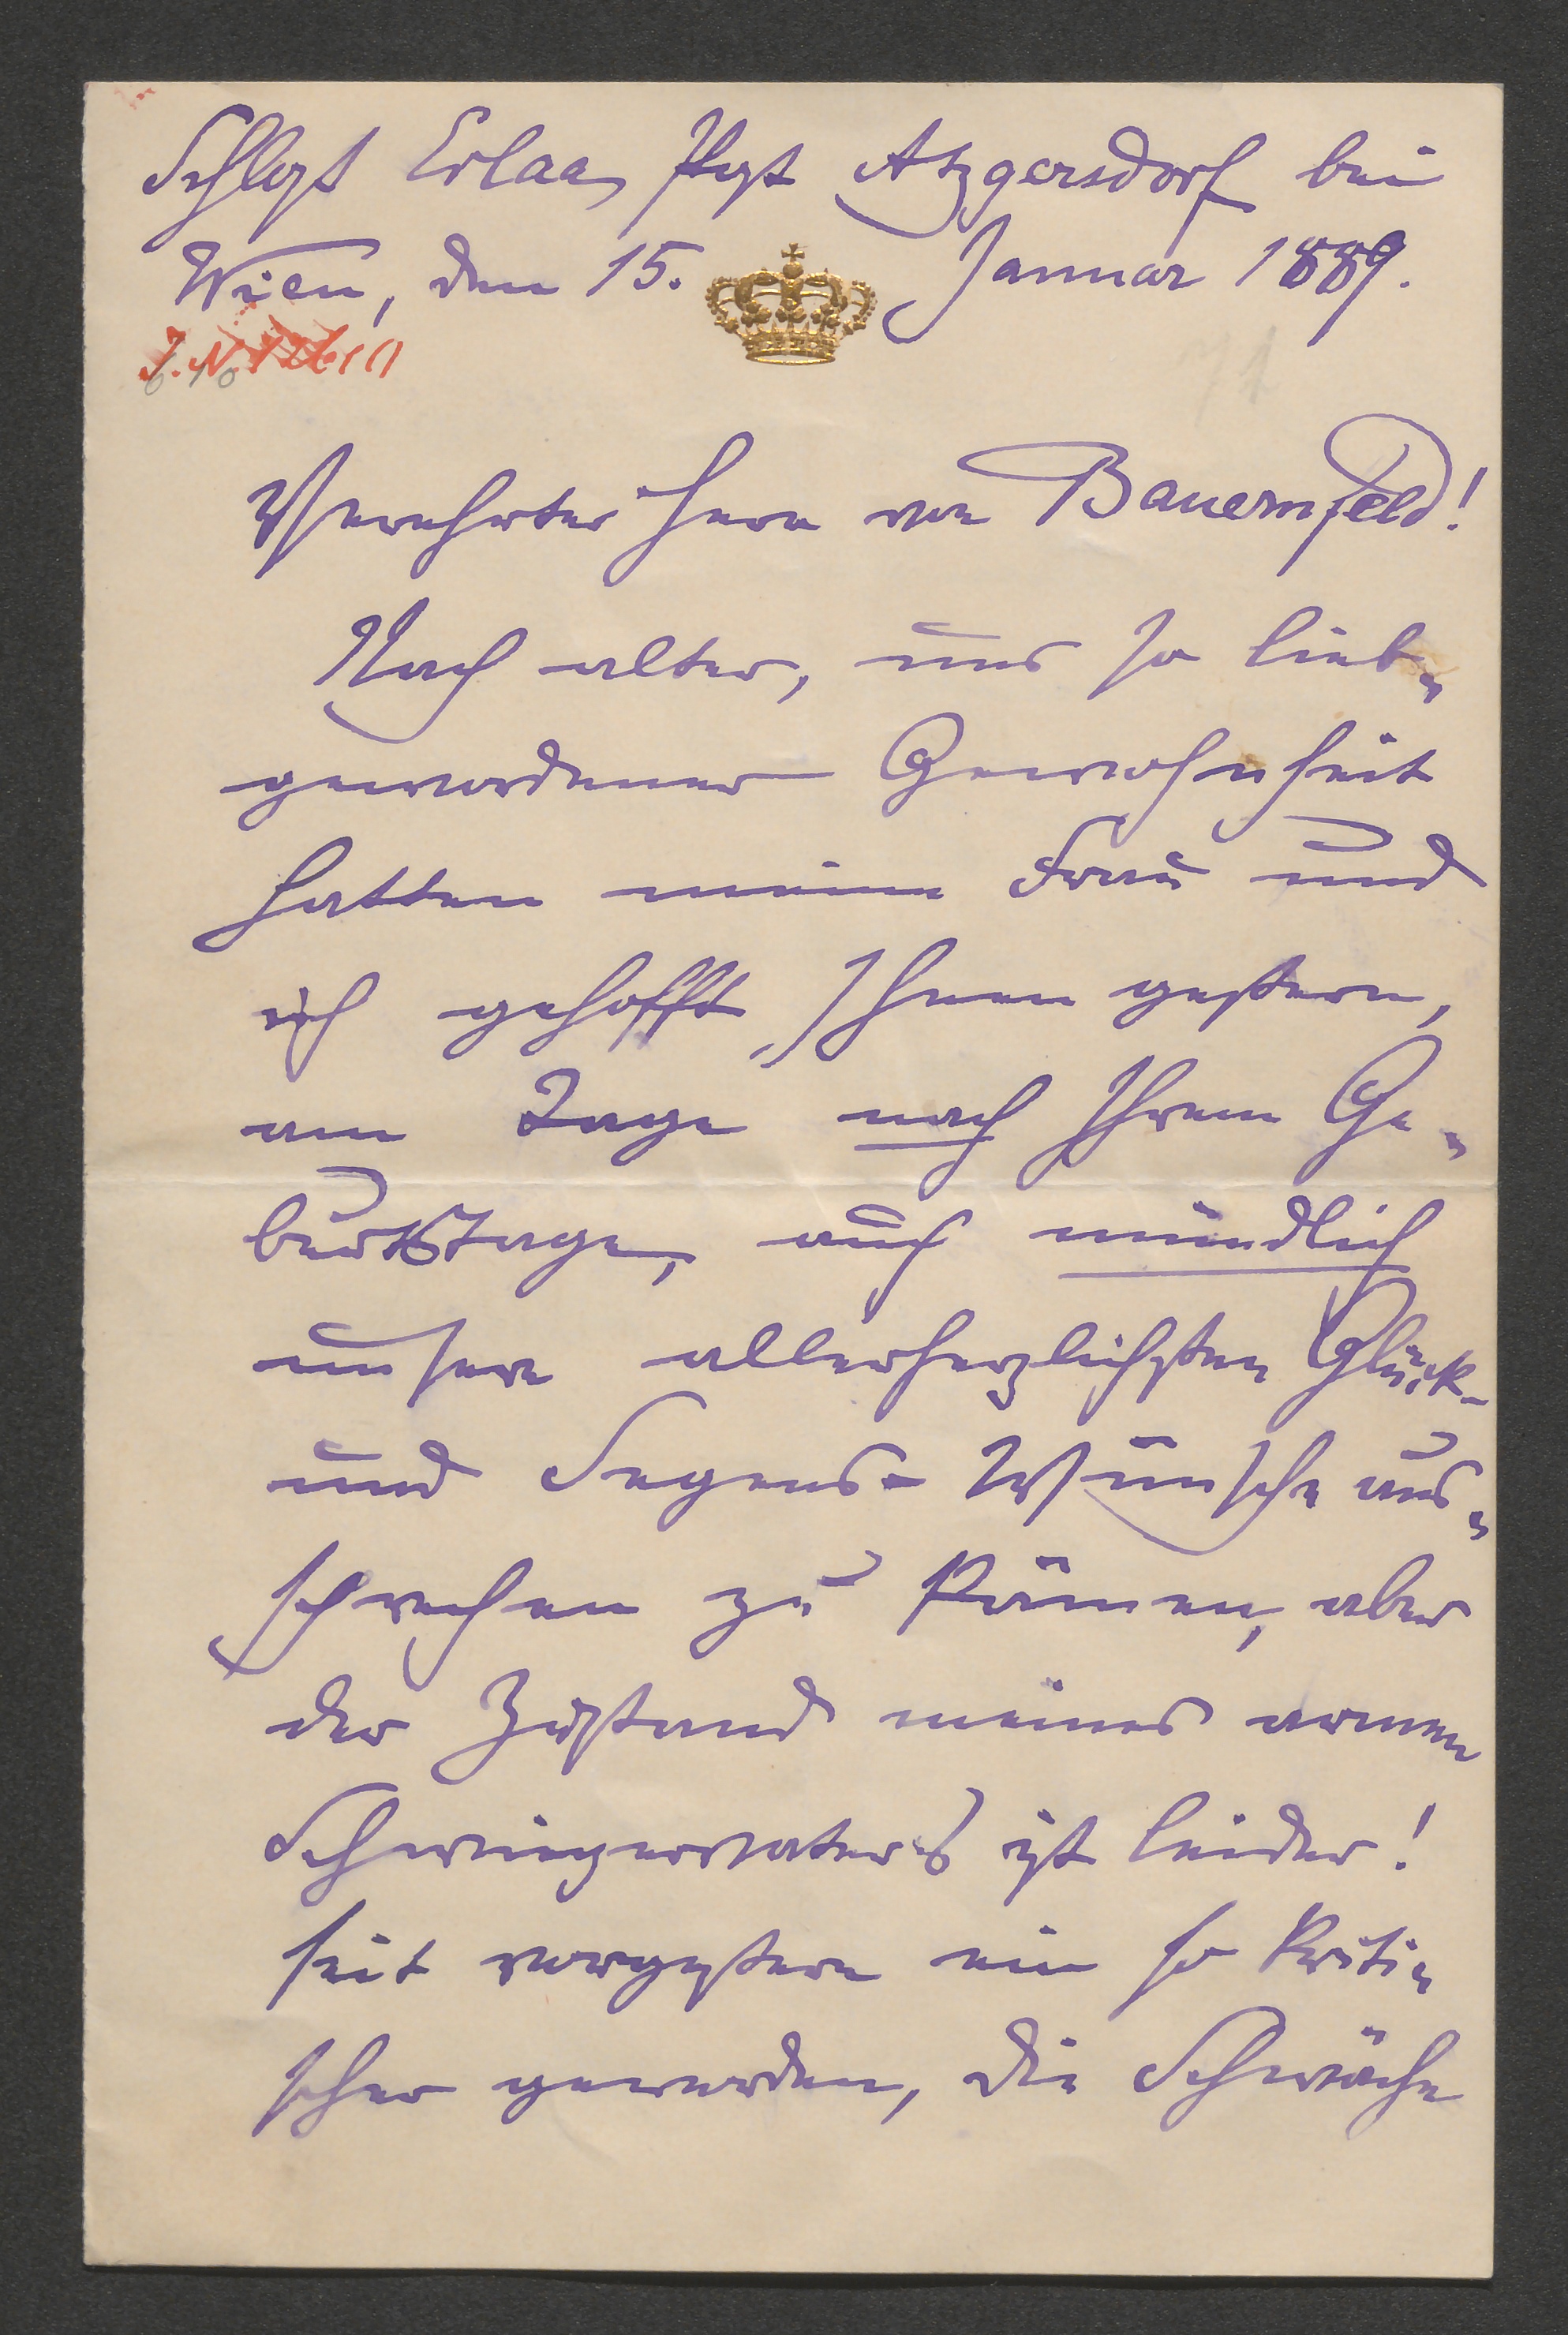 Schloß Erlaa, Post Atzgersdorf bei
Wien, den 15. Januar 1889.
Verehrter Herr von Bauernfeld!
Nach alter, uns so lieb-
gewordener Gewohnheit
hatten meine Frau und
ich gehofft, Ihnen gestern,
am Tage nach Ihrem Ge-
burtstage, auch mündlich
unsere allerherzlichsten Glück-
und Segens-Wünsche aus-
sprechen zu können, aber
der Zustand meines armen
Schwiegervaters ist leider!
seit vorgestern ein so kriti-
scher geworden, die Schwäche